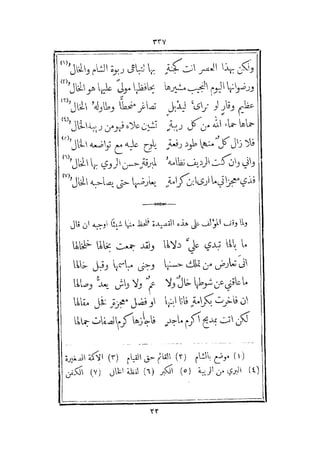 ٣٣٧
ولكن بهذا العصر انت كجنة بها تتباهى ربوة الشام والخال (١)
ورضوانها اليوم النجيب مشيرها بحافظها مولىً عليها هو الخال (٢)
عظيم وقار لو تراى ليذبل تصاغر منحطاً وطاوله الخال (٣)
حماها حماه الله من كل ريبة تشين علاه فهو من ريبه الخال (٤)
فلا زال كل منهما طود رفعة يلوح عليه مع تواضعه الخال (٥)
واني وان كنت الرديف نظامه لميزته حسن الروي بها الخال (٦)
فذي معجزاتي ما ارى ابن كرامة يعارضها حتى يصاحبه الخال (٧)
ولما وقف المؤلف على هذه القصيدة فلحظ منها شيئا اوجبه ان قال
ما بالها تبدي عليَّ دلالها ولقد جمعت بخالها خلخالها
انى تعارض من تملك حسنها وجنى مباسمها وقبل خالها
ما عاقني عن شوطها خال ولا عم ولا واش يعد وصالها
ان فاخرت بكرامة فانا ابنها او فضل معجزة فخل مقالها
لكن اتت بمديح اكرم ماجد فاجازها اكرم الصفات جمالها
(١) موضع بالشام (٢) القائم حق القيام (٣) الاكمة الصغيرة
(٤) البري من الريبة (٥) الكبر (٦) لفظة الخال (٧) الكفن
٢٢